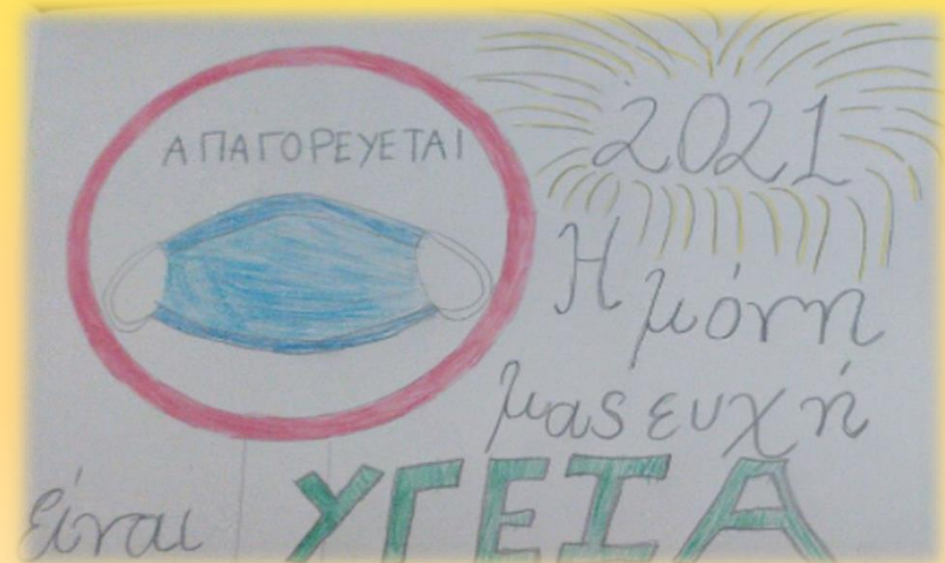 ΑΠΑΓΟΡΕΥΕΤΑΙ
2021
Η μόνη
μας ευχή
είναι ΥΓΕΙΑ